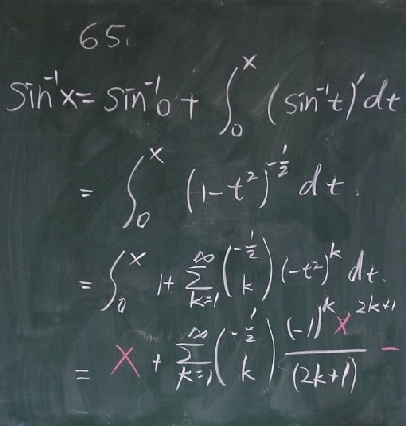 65.
sin⁻¹x = sin⁻¹0 + ∫₀ˣ (sin⁻¹t)' dt
= ∫₀ˣ (1-t²)^(-1/2) dt.
= ∫₀ˣ 1 + ∑_{k=1}^{∞} (-1/2 choose k) (-t²)^k dt.
= x + ∑_{k=1}^{∞} (-1/2 choose k) (-1)^k x^(2k+1) / (2k+1) -